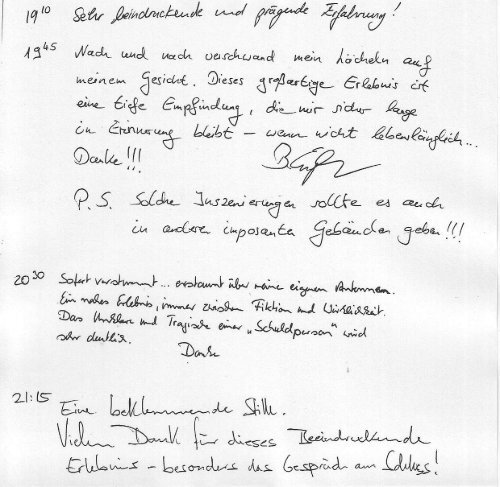 19¹⁰ Sehr beindruckende und prägende Erfahrung!
19⁴⁵ Nach und nach verschwand mein lächeln auf
meinem Gesicht. Dieses großartige Erlebnis ist
eine tiefe Empfindung, die mir sicher lange
in Erinnerung bleibt – wenn nicht lebenslänglich...
Danke!!!
P.S. Solche Inszenierungen sollte es auch
in anderen imposanten Gebäuden geben!!!
20³⁰ Sofort verstummt... erstaunt über meine eigenen Antworten.
Ein nahes Erlebnis, immer zwischen Fiktion und Wirklichkeit.
Das Unklare und Tragische einer „Schuldperson" wird
sehr deutlich.
Danke
21:15 Eine beklemmende Stille.
Vielen Dank für dieses Beeindruckende
Erlebnis – besonders das Gespräch am Schluss!